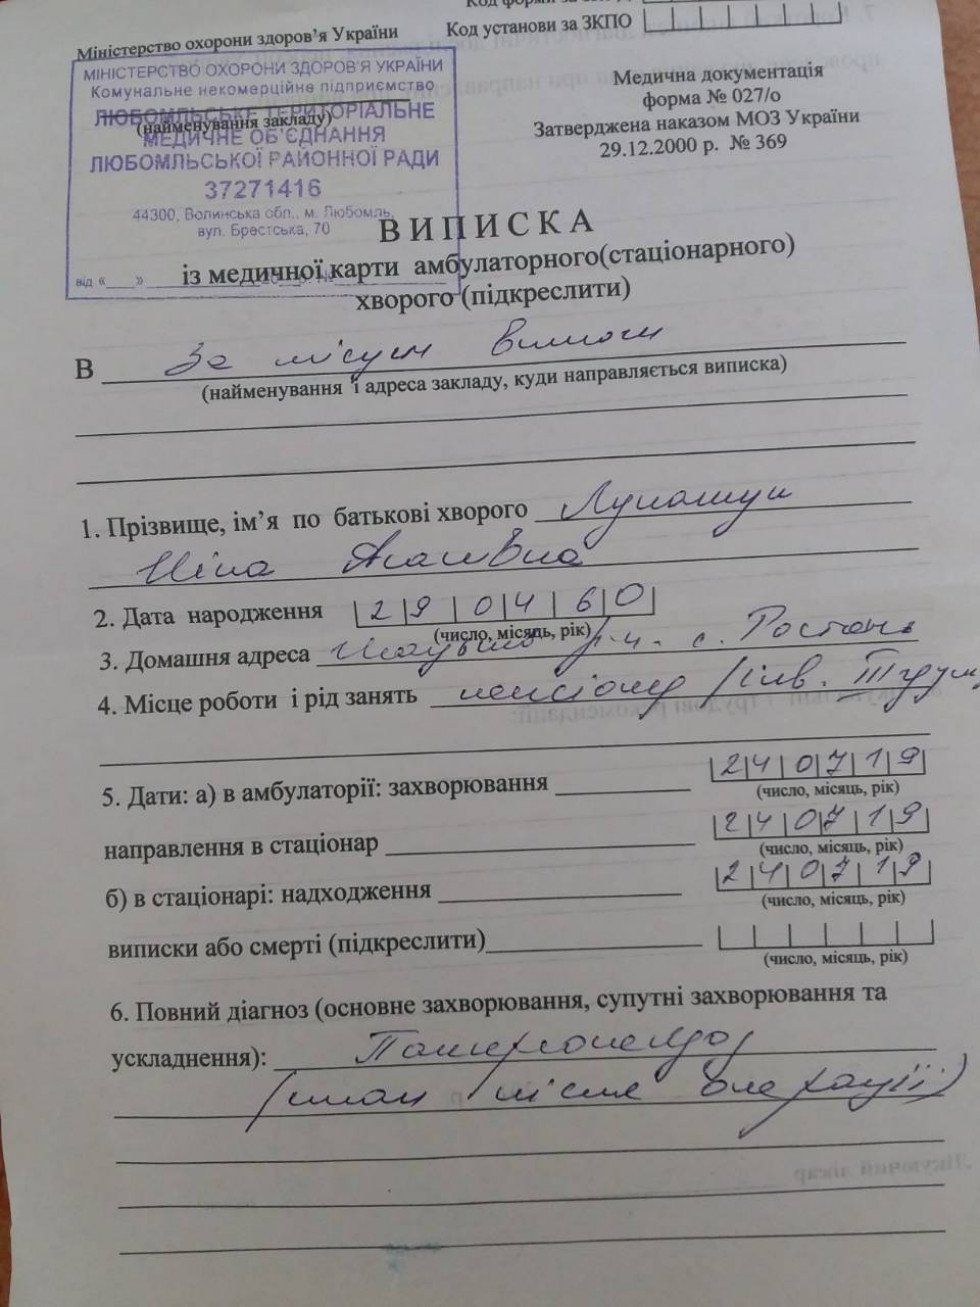 Код установи за ЗКПО
Міністерство охорони здоров’я України
МІНІСТЕРСТВО ОХОРОНИ ЗДОРОВ'Я УКРАЇНИ
Комунальне некомерційне підприємство
ЛЮБОМЛЬСЬКЕ ТЕРИТОРІАЛЬНЕ
(найменування закладу)
МЕДИЧНЕ ОБ'ЄДНАННЯ
ЛЮБОМЛЬСЬКОЇ РАЙОННОЇ РАДИ
37271416
44300, Волинська обл., м. Любомль,
вул. Брестська, 70
від «____»
Медична документація
форма № 027/о
Затверджена наказом МОЗ України
29.12.2000 р. № 369
ВИПИСКА
із медичної карти амбулаторного(стаціонарного)
хворого (підкреслити)
В За місцем вимоги
(найменування і адреса закладу, куди направляється виписка)
1. Прізвище, ім’я по батькові хворого
Ніна
2. Дата народження 29 04 60
(число, місяць, рік)
3. Домашня адреса р-н. с. Ростань
4. Місце роботи і рід занять пенсіонер / інв. III групи
5. Дати: а) в амбулаторії: захворювання 240719
(число, місяць, рік)
направлення в стаціонар 240719
(число, місяць, рік)
б) в стаціонарі: надходження 240719
(число, місяць, рік)
виписки або смерті (підкреслити)
(число, місяць, рік)
6. Повний діагноз (основне захворювання, супутні захворювання та
ускладнення):
(стан після операції)